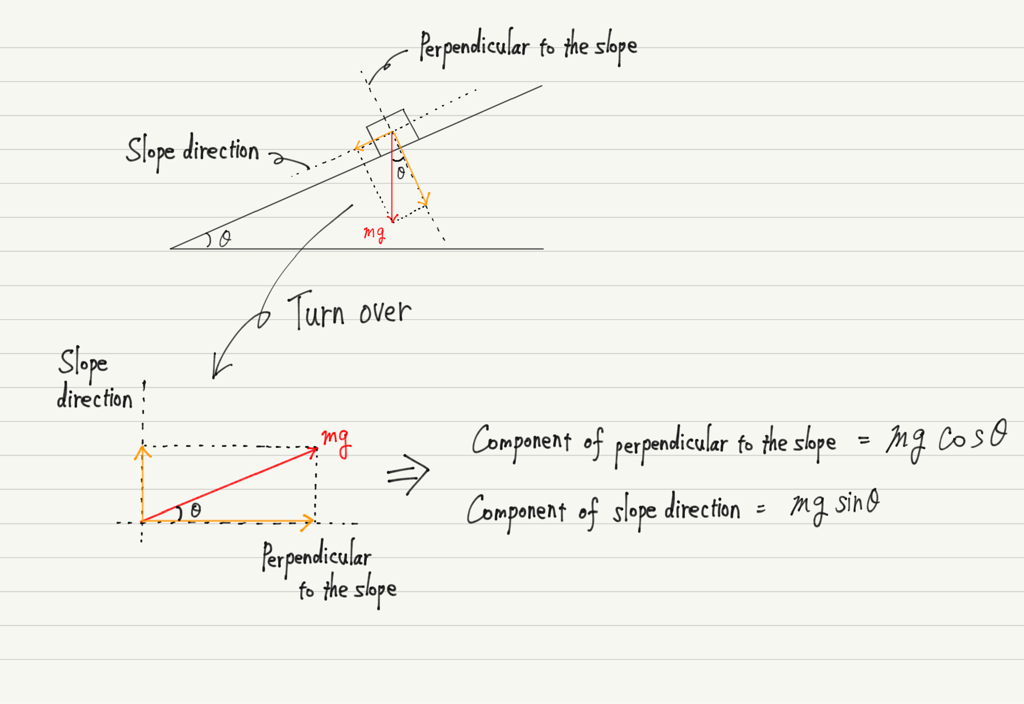 Perpendicular to the slope
Slope direction
θ
mg
θ
Turn over
Slope
direction
mg
θ
Perpendicular
to the slope
⇒
Component of perpendicular to the slope = mg cosθ
Component of slope direction = mg sinθ